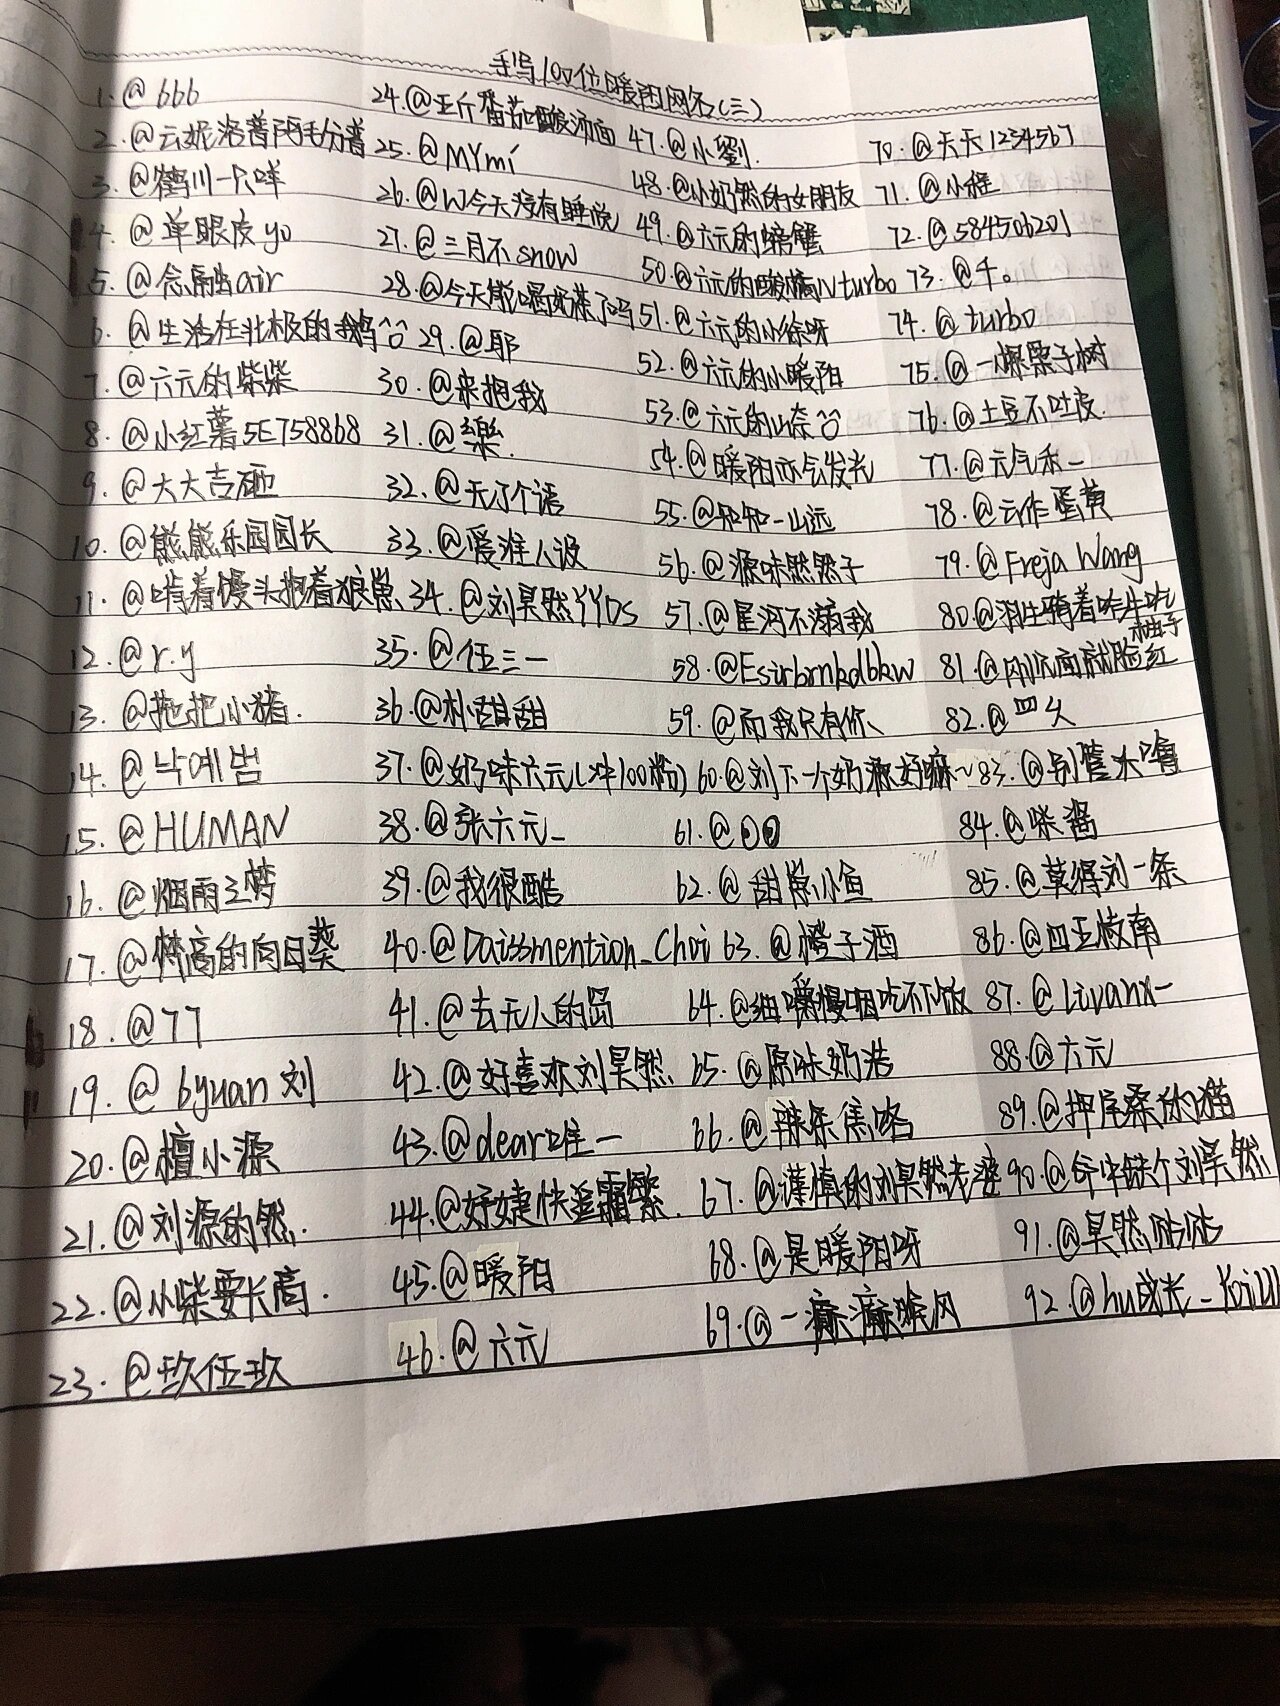 手写100位暖阳网名(三)
1.@666
2.@云妮洛普两毛分普
3.@鹤川一只咩
4.@单眼皮yo
5.@念融出air
6.@生活在北极的我鸽^^
7.@六元的柴柴
8.@小红薯5E7588b8
9.@大大吉砸
10.@熊熊乐园园长
11.@啃着馒头抱着狼崽
12.@r.y
13.@拖把小猪.
14.@낙예빔
15.@HUMAN
16.@烟雨之梦
17.@梵高的向日葵
18.@77
19.@6yuan刘
20.@檀小源
21.@刘源的然.
22.@小柴要长高.
23.@玖伍玖
24.@五斤番茄酸汤面
25.@MYmí
26.@W今天没有睡觉
27.@三月不snow
28.@今天能喝奶茶了吗
29.@耶
30.@来抱我
31.@樂.
32.@无了个语
33.@爱淮人设
34.@刘昊然YYDS
35.@伍三一
36.@朴甜甜
37.@奶味六元(冲100粉)
38.@张六元_
39.@我很酷
40.@Daissmention_Choi
41.@去无人的岛
42.@好喜欢刘昊然
43.@dear唯一
44.@好婕快逃霜繁.
45.@暖阳
46.@六元
47.@小劉.
48.@小奶然的女朋友
49.@六元的螃蟹
50.@六元的酸橘Nturbo
51.@六元的小徐呀
52.@六元的小暖阳
53.@六元的山奈^^
54.@暖阳亦会发光
55.@知知一山远
56.@源味然然子
57.@星河不溺我
58.@Esirbrnkdbkw
59.@而我只有你
60.@刘下一个奶源好嘛~
61.@
62.@甜崽小鱼
63.@橙子酒
64.@细嚼慢咽吃不下饭
65.@原味奶浩
66.@辣条焦咯
67.@谨慎的刘昊然老婆
68.@是暖阳呀
69.@一癫癫猴风
70.@天天1234567
71.@小程
72.@584506201
73.@千。
74.@turbo
75.@一棵栗子树
76.@土豆不吐皮.
77.@元气禾一
78.@云作蛋黄
79.@Freja Wang
80.@羽生骑着吃牛吃柚子
81.@刚见面就脸红
82.@四火
83.@别管木噜
84.@柴酱
85.@莫得刘一条
86.@四五枝南
87.@livanx-
88.@六元
89.@押尾桑的猫
90.@命中缺个刘昊然
91.@昊然贴贴
92.@hu成光_